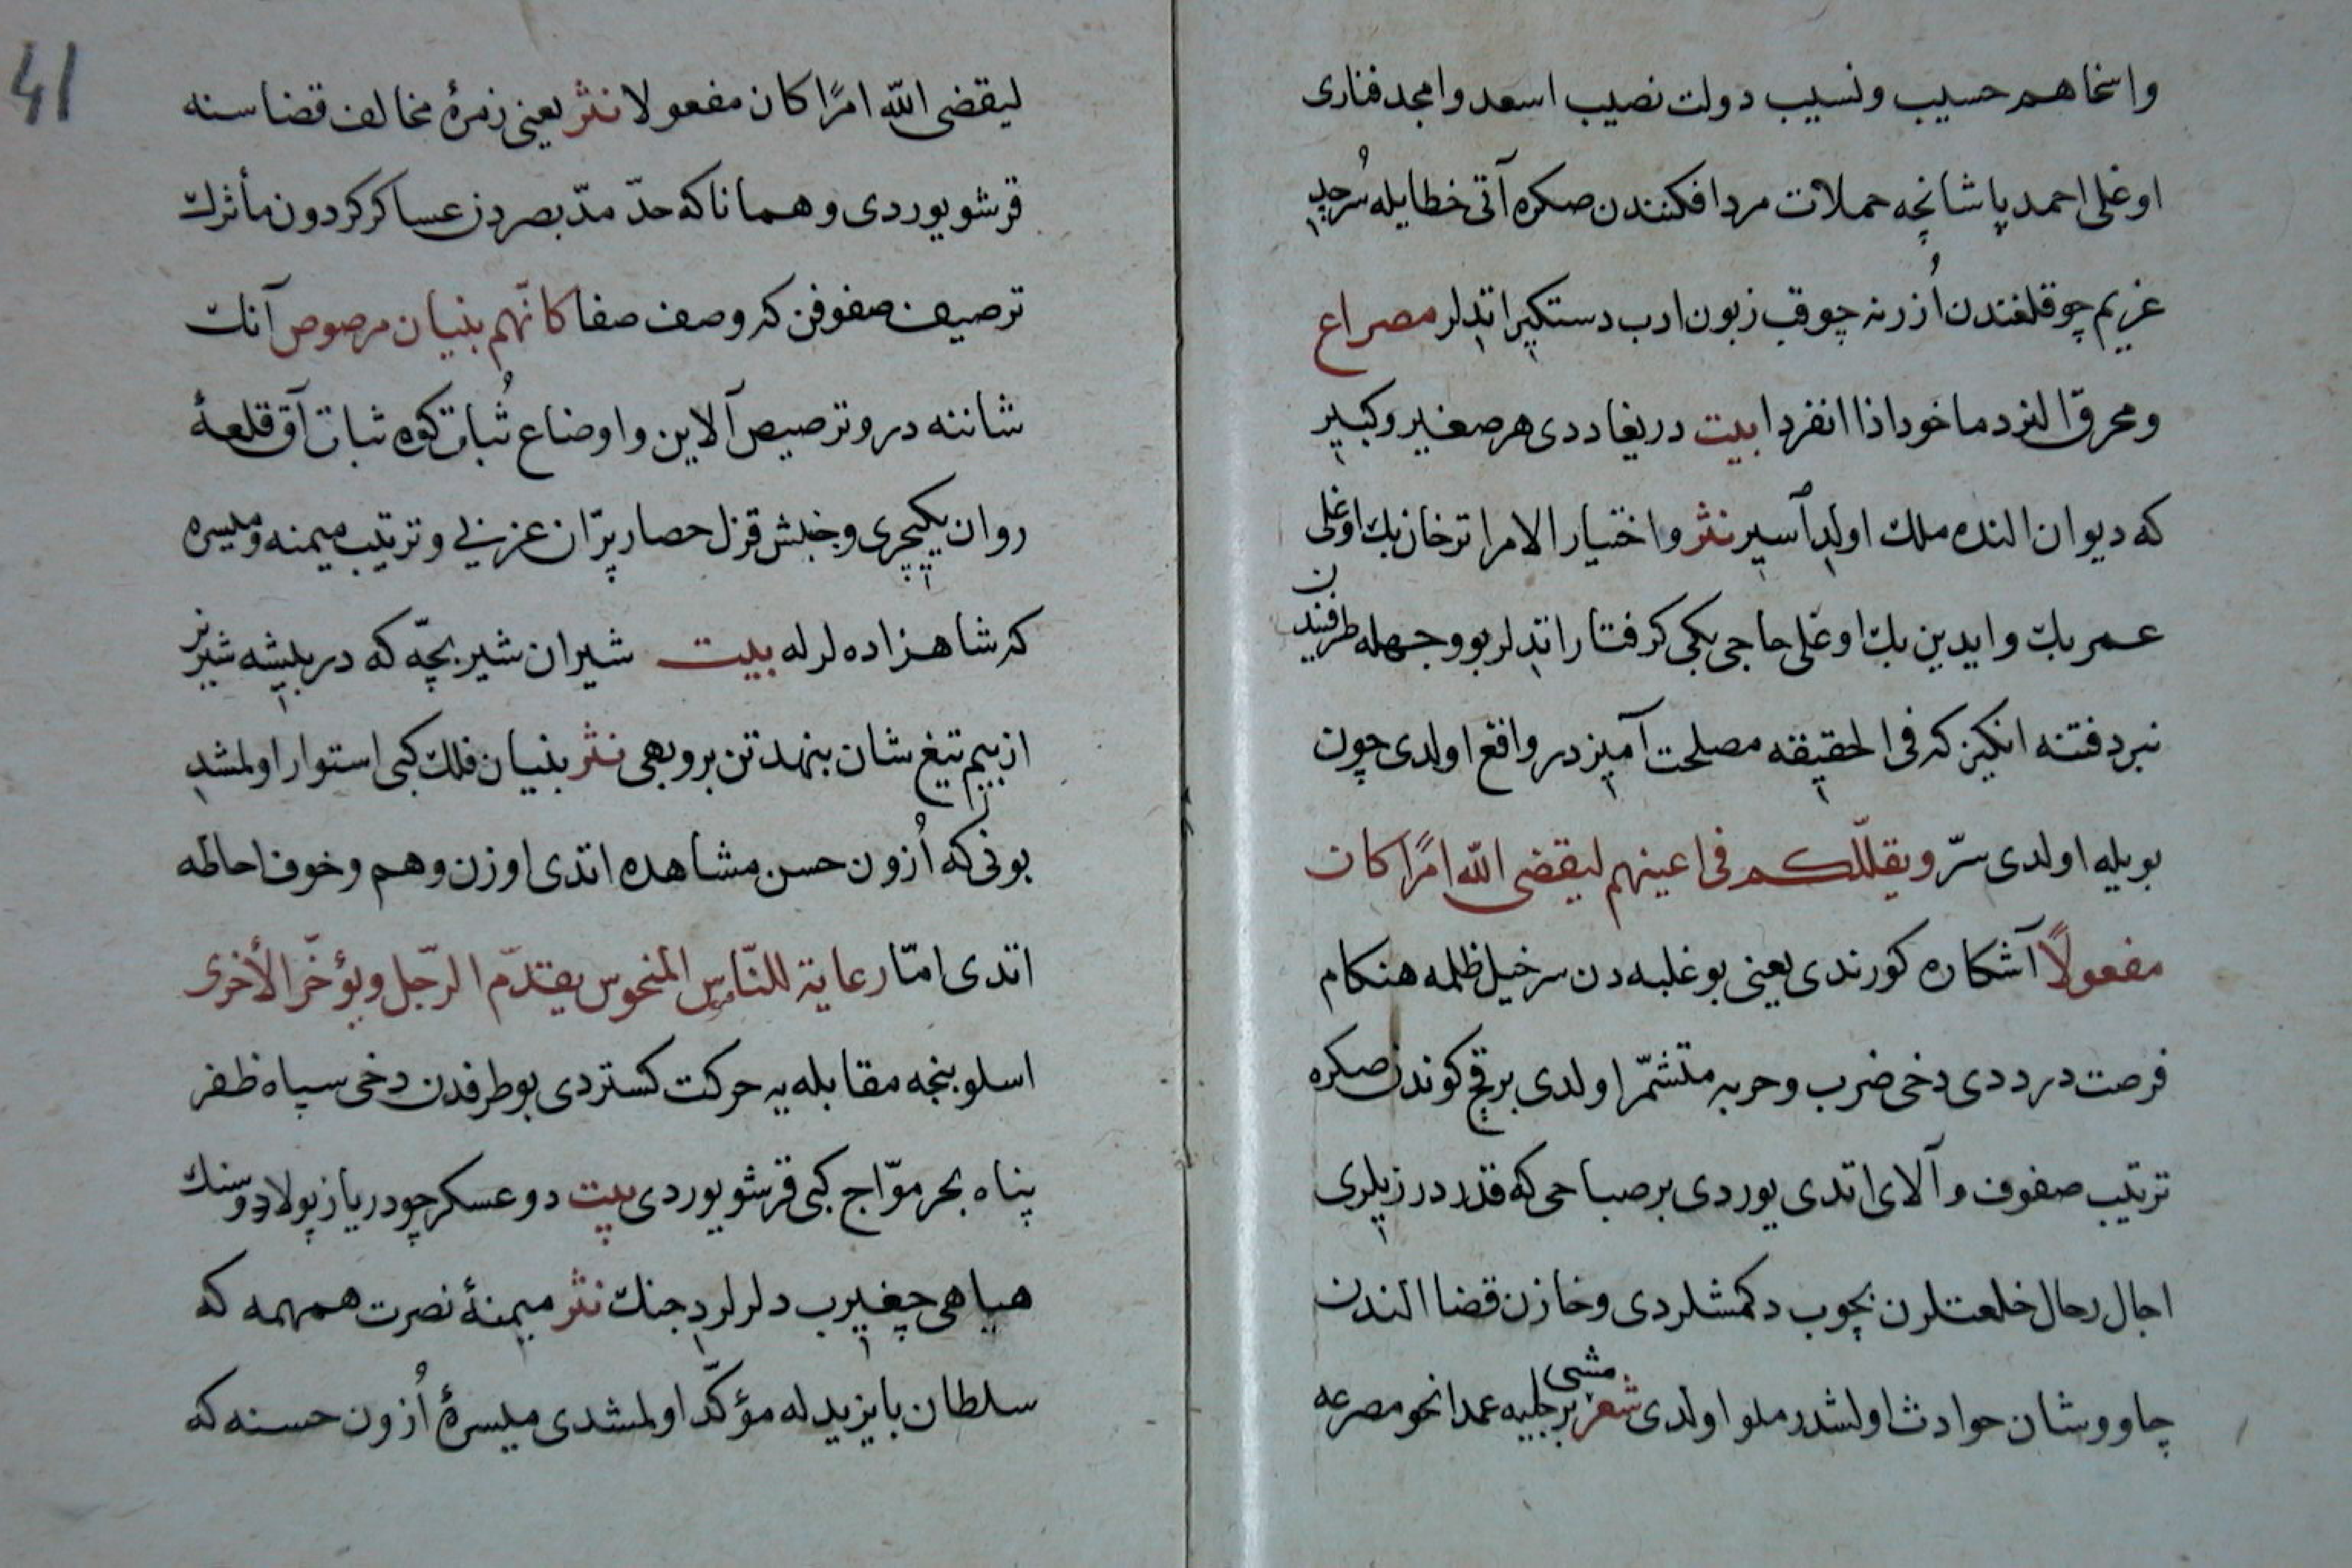 واسخا هم حسیب ونسیب دولت نصیب اسعد وامجد فناری
اوغلی احمد پاشا نچه حملات مردافکنندن صکره آتی خطایله سرحد
غریم چوقلغندن اُزرنه چوقب زبون ادب دستکیر اتدلر مصراع
ومحرق النرد ماخوذ اذا انفردا بیت دریغا ددی هر صغیر وکبیر
که دیوان النده ملك اولدی اسیر نثر واختیار الامرا ترخان بك اوغلی
عمر بك وایدین بك اوغلی حاجی بکی کرفتار اتدلر بو وجهله طرفندن
نبرد فتنه انکیز که فی الحقیقه مصلحت آمیزدر واقع اولدی چون
بویله اولدی سرّ ویقلّلکم فی اعینهم لیقضی الله امرًا کان
مفعولاً آشکاره کورندی یعنی بو غلبه دن سرخیل ظلمه هنکام
فرصت در ددی دخی ضرب وحربه متشمّر اولدی برقچ کوندن صکره
ترتیب صفوف وآلای اتدی یوردی بر صباحی که قدر درزیلری
اجال رحال خلعتلرن بچوب دکمشلردی وخازن قضا الندن
چاووشان حوادث اولشدر ملو اولدی شعر مشی برجلیه عمدا نحو مصرعه
41
لیقضی الله امرًا کان مفعولا نثر یعنی زمرۀ مخالف قضا سنه
قرشو یوردی وهمانا که حدّ مدّ بصردن عساکر کردون مأثرك
ترصیف صفوفن که وصف صفا کانّهم بنیان مرصوص آنك
شاننه در وترصیص آلاین واوضاع ثُبات کوه ثبات آق قلعۀ
روان یکیچری وجنبش قزل حصار پرّان عزبی وترتیب میمنه ومیسره
که شاهزاده لرله بیت شیران شیر بچّه که در بیشه شیر نر
از بیم تیغ شان بنهد تن بروبهی نثر بنیان فلك کبی استوار اولمشدی
بونی که اُزون حسن مشاهده اتدی اوزن وهم وخوف احاطه
اتدی امّا رعایة للنّاموس المنحوس یقدّم الرّجل ویؤخّر الأخری
اسلوبنجه مقابله یه حرکت کستردی بو طرفدن دخی سپاه ظفر
پناه بحر موّاج کبی قرشو یوردی بیت دو عسکر چو دریا ز پولاد وسنك
هیاهی چغیرب دلرلردی جنك نثر میمنۀ نصرت همهمه که
سلطان بایزید له مؤکّد اولمشدی میسرۀ اُزون حسنه که